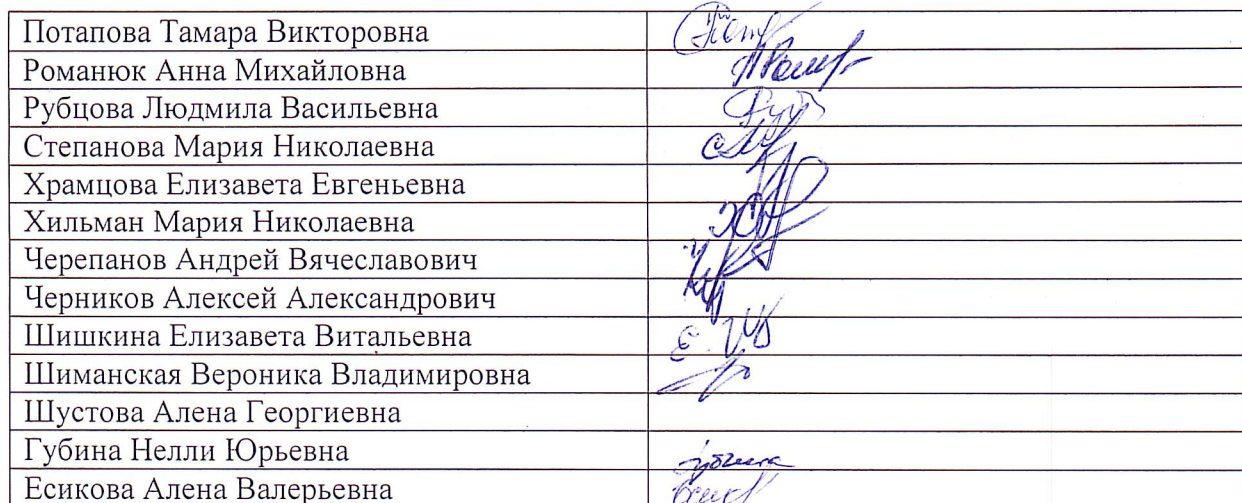 Потапова Тамара Викторовна
Романюк Анна Михайловна
Рубцова Людмила Васильевна
Степанова Мария Николаевна
Храмцова Елизавета Евгеньевна
Хильман Мария Николаевна
Черепанов Андрей Вячеславович
Черников Алексей Александрович
Шишкина Елизавета Витальевна
Шиманская Вероника Владимировна
Шустова Алена Георгиевна
Губина Нелли Юрьевна
Есикова Алена Валерьевна